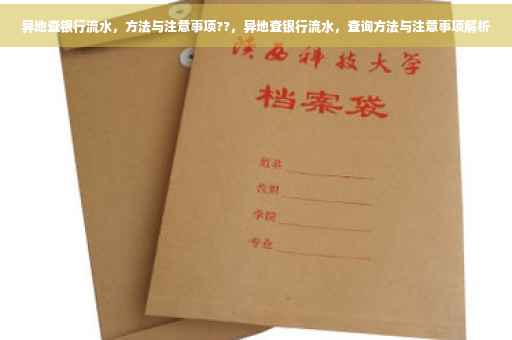 异地查银行流水，方法与注意事项??，异地查银行流水，查询方法与注意事项解析
陕西科技大学
档案袋
学院
专业